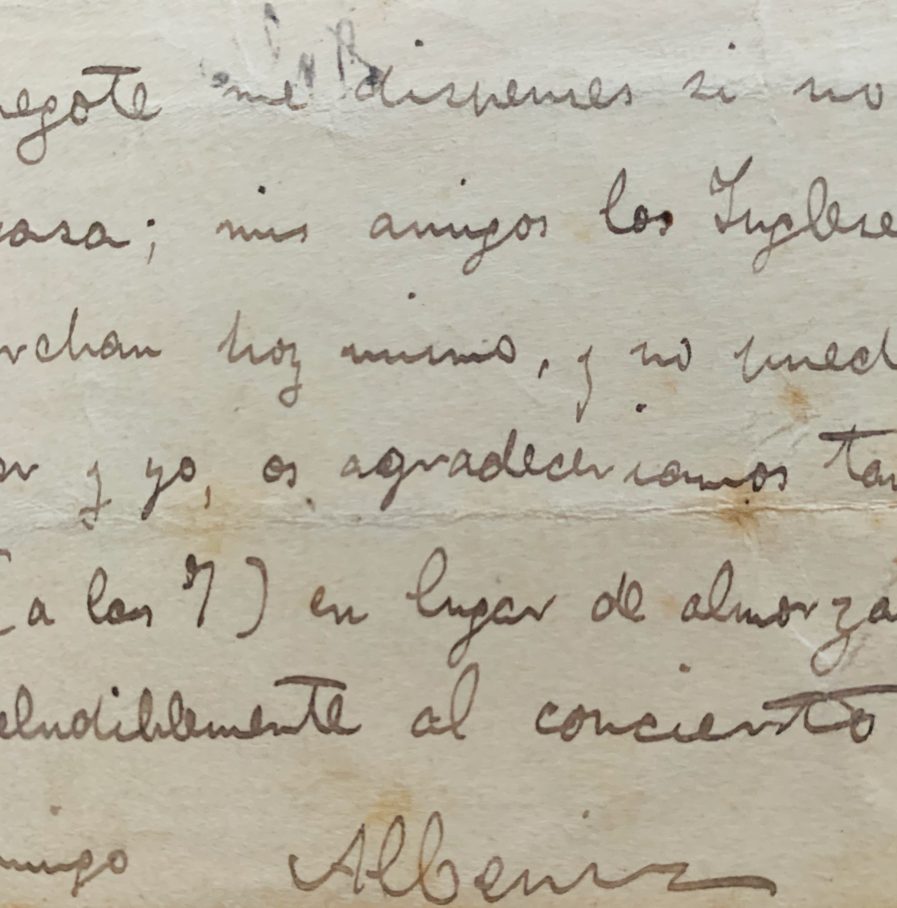 negote me dispenses si no
casa; mis amigos los Inglese
rchan hoy mismo, y no pued
or y yo, os agradeceriamos tan
(a las 7) en lugar de almorza
eludiblemente al concierto
amigo Albeniz